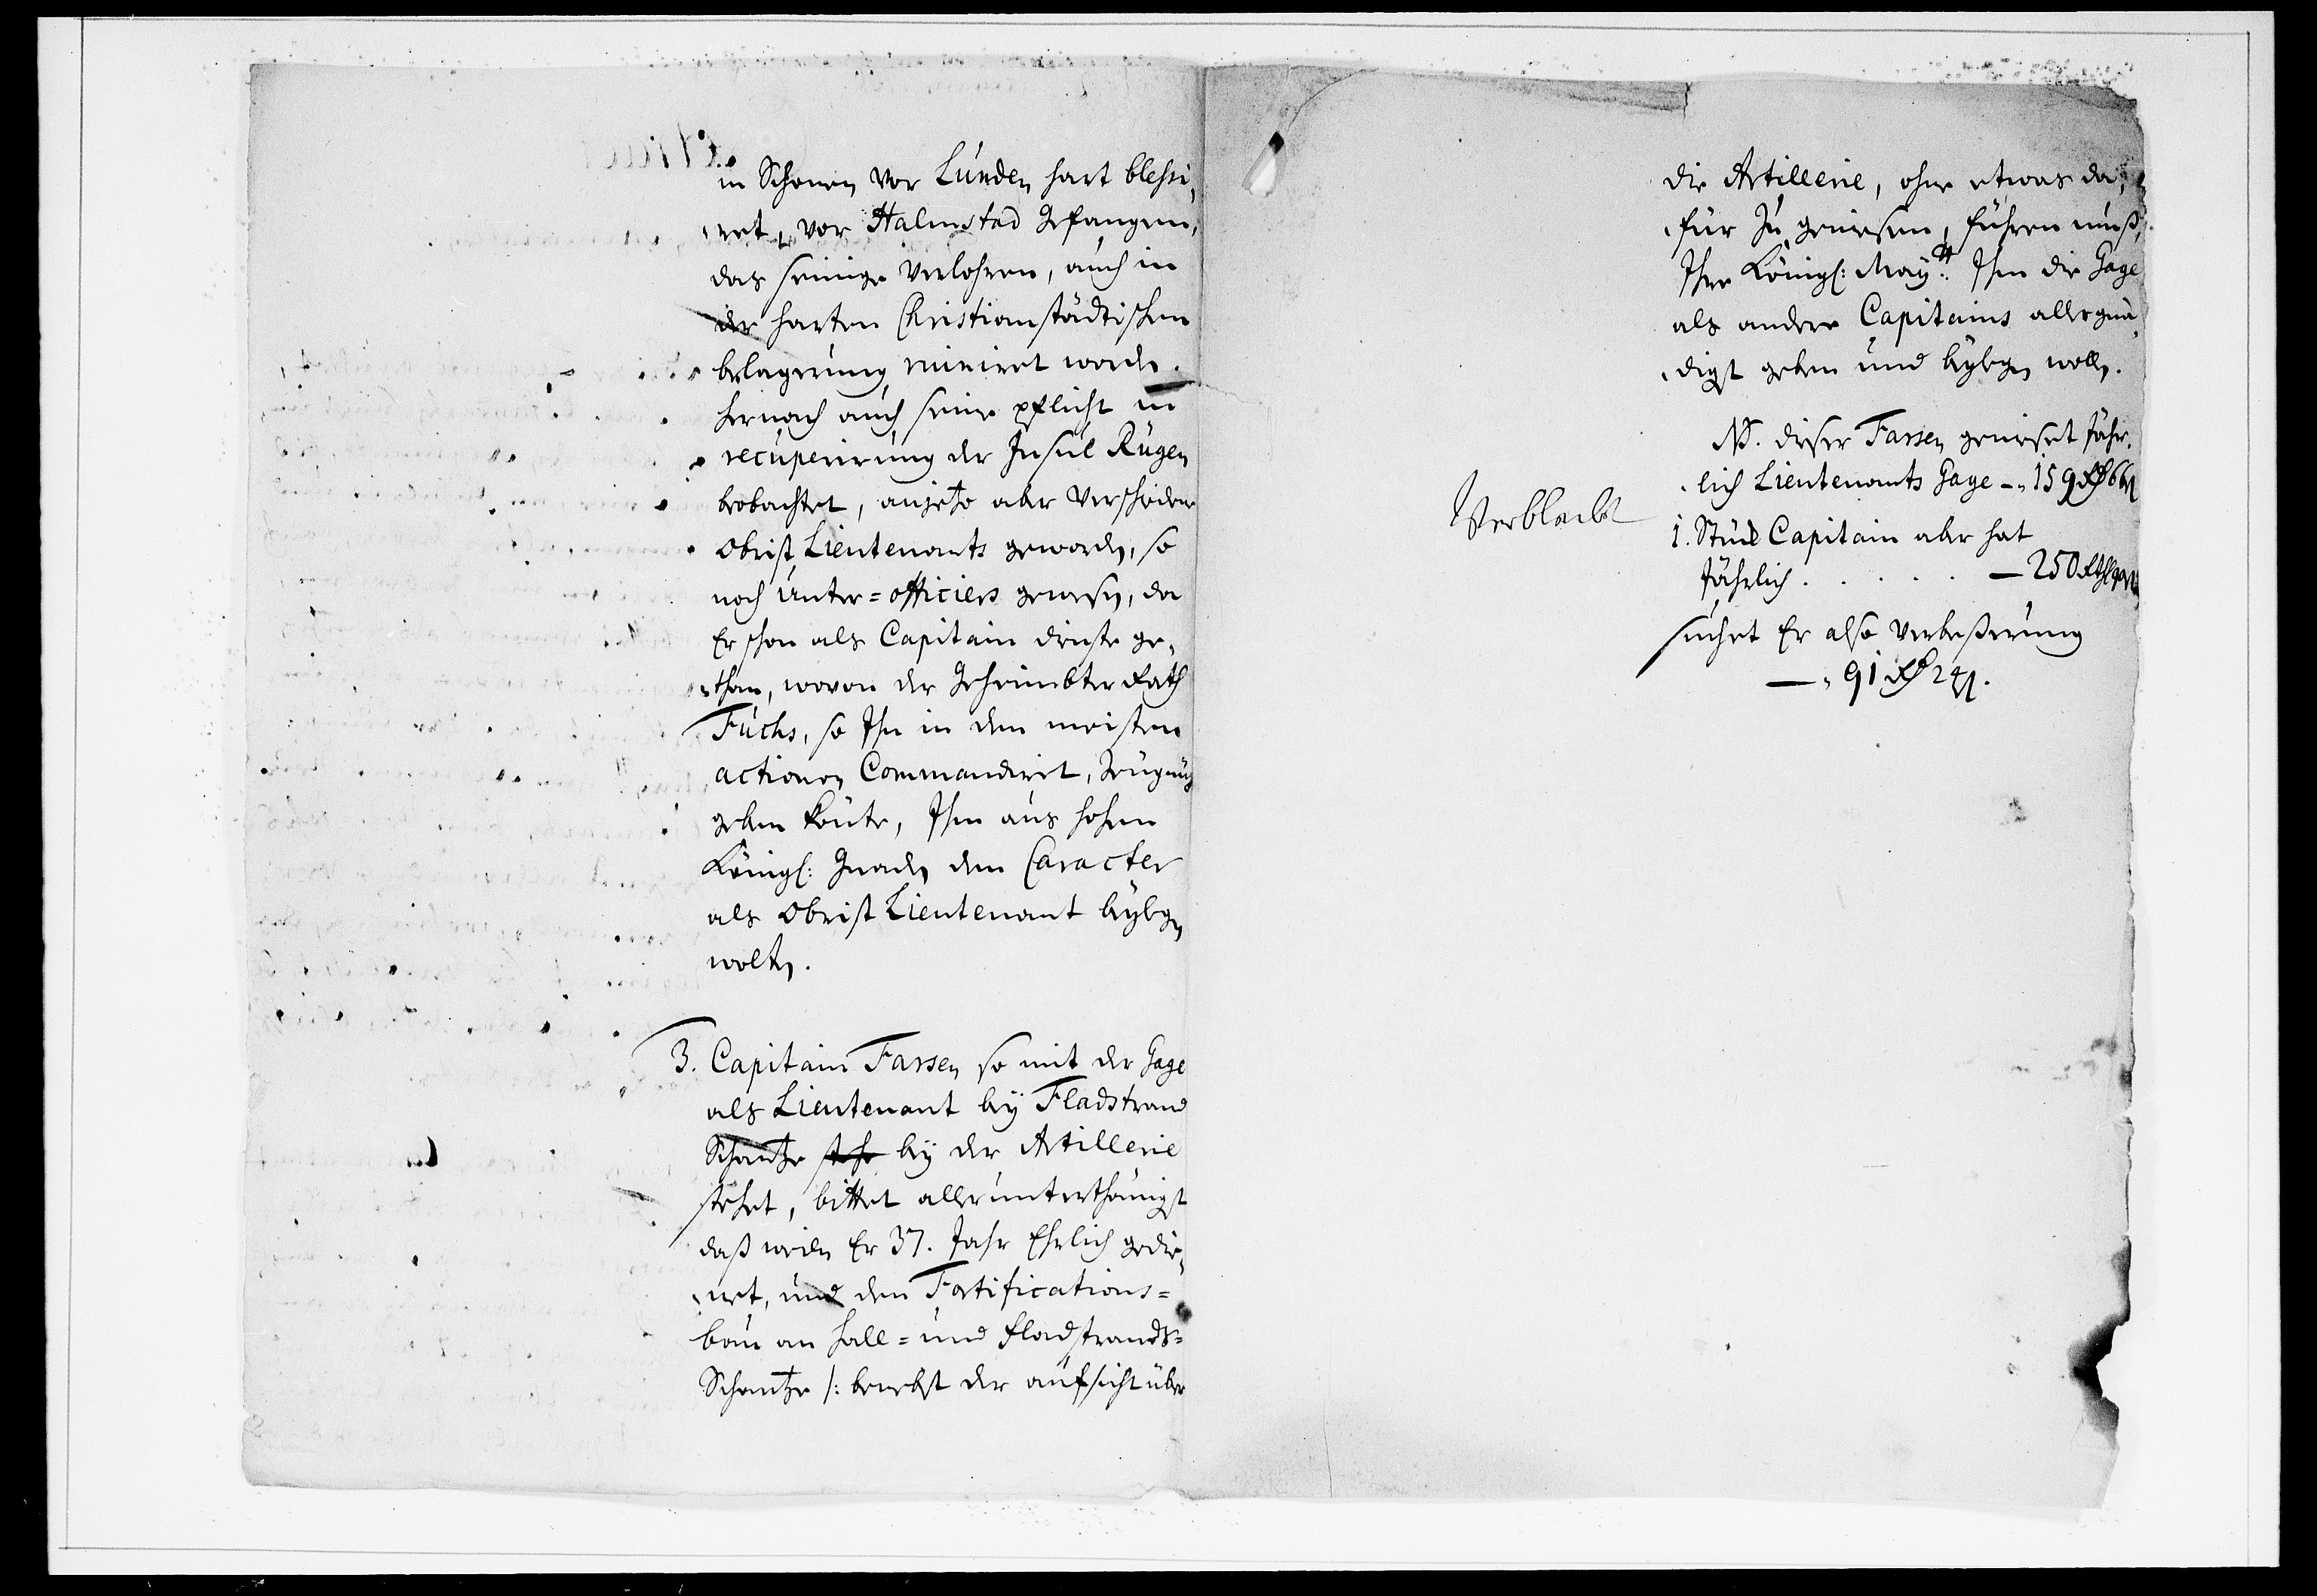 in Schonen vor Lunden hart blessi,
,ret, vor Halmstad Gefangen,
das seinige Verlohren, auch in
der harten Christianstädtischen
belagerung ruiniret worden.
hernach auch seine pflicht in
recuperirung der Insul Rügen
beobachtet, anjetzo aber Verschiedene
Obrist Lieutenants geworden, so
noch Unter=officiers gewesen, da
Er schon als Capitain dienste ge,
,than, wovon der Geheimbter Rath
Fuchs, so Ihn in den meisten
actionen Commandiret, Zeugnüß
geben könte, Ihm aus hohen
Königl: Gnaden den Caracter
als Obrist Lieutenant beylegen
wolten.
3. Capitain Farsen so mit der Gage
als Lieutenant bey Fladstrand
Schantze bey der Artillerie
stehet, bittet allerunterthänigst
daß weilen Er 37. Jahr Ehrlich gedie,
,net, und den Fortifications=
bau an Hall= und Fladstrands=
Schantze /: benebst der aufsicht über
die Artillerie, ohne etwas da,
,für zu geniesen, führen muß,
Ihre Königl: Maytt: Ihm die Gage
als andere Capitains allergnä,
,digst geben und beylegen wollen.
NB. dieser Farsen genieset Jähr,
,lich Lieutenants Gage - 159 Rth 66
Verbleibt
1. Stück Capitain aber hat
Jährlich . . . . . - 250 Rth
suchet Er also Verbeßerung
- 91 Rth 24